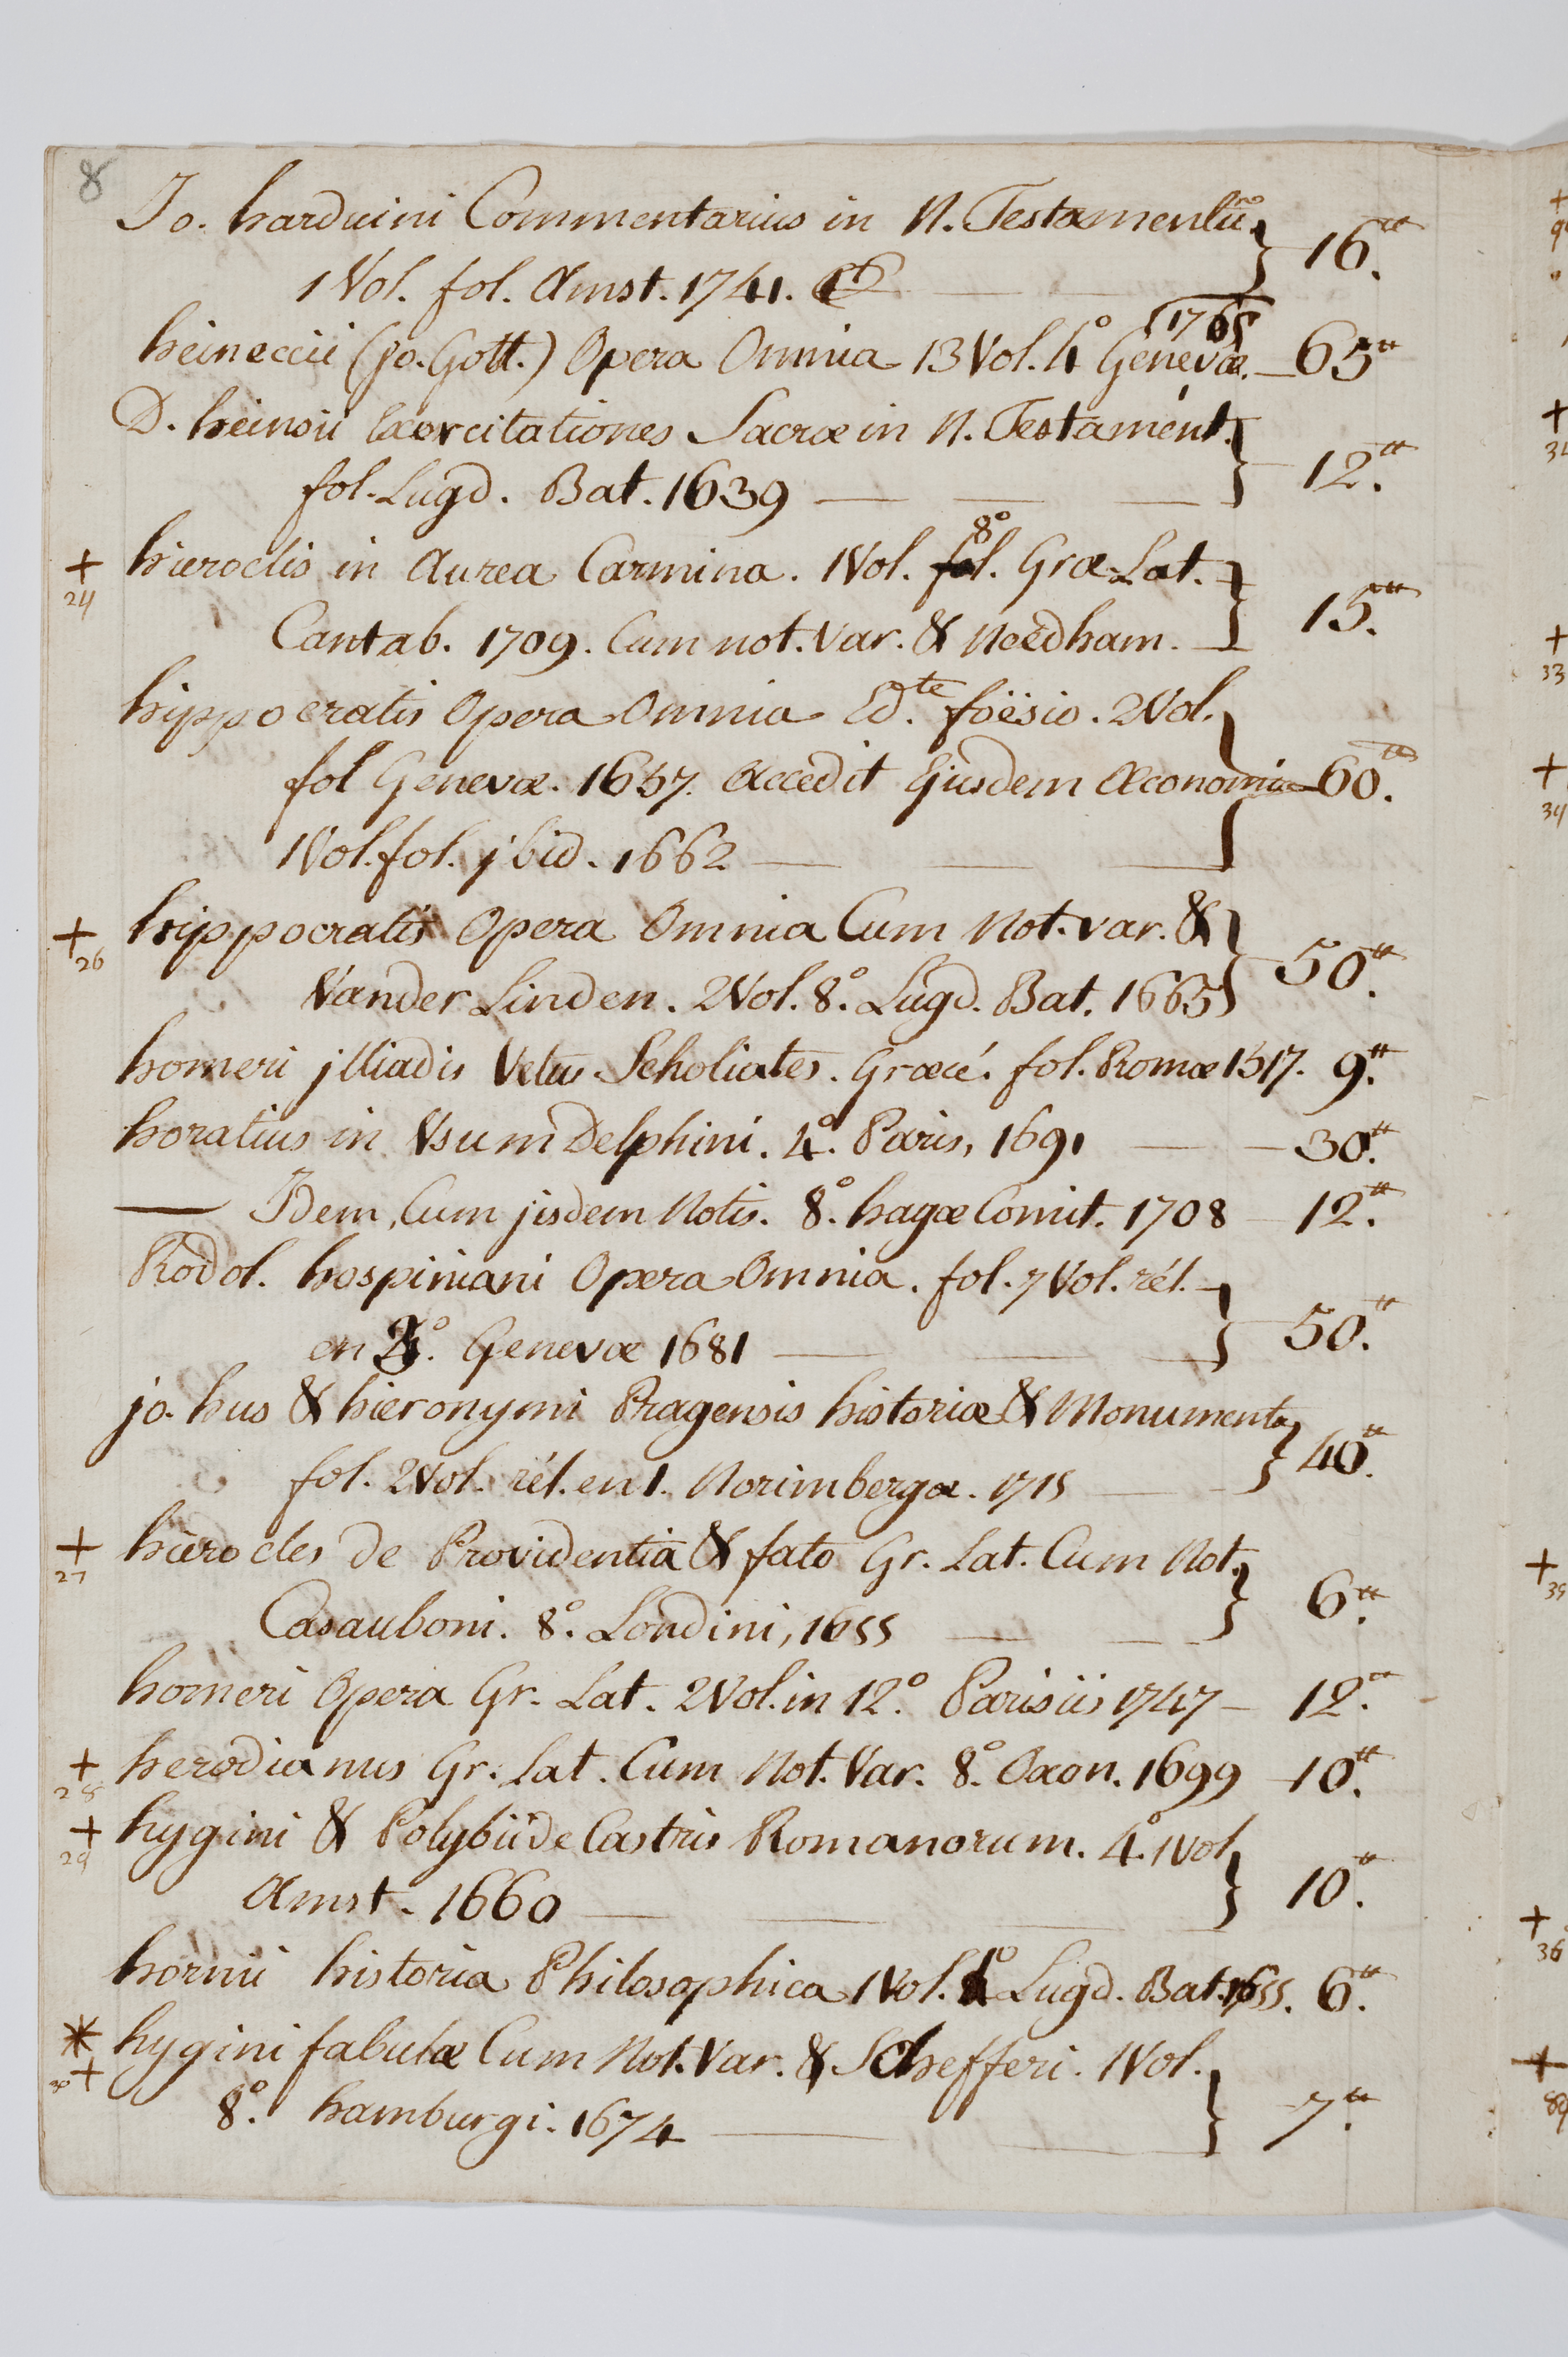 8
Jo. harduini Commentarius in N. Testamentū
1 Vol. fol. Amst. 1741. 16.ᵗᵗ
1765
heineccii (Jo. Gott.) Opera Omnia 13 Vol. 4º Genevæ. 65ᵗᵗ
D. heinsii Exercitationes Sacræ in N. Testament.
fol. Lugd. Bat. 1639 12.ᵗᵗ
8º
+ 24 hieroclis in Aurea Carmina. 1 Vol. fol. Græ-Lat.
Cantab. 1709. Cum not. Var. & Needham. 15.ᵗᵗ
hippocratis Opera Omnia Ed.te foësio. 2 Vol.
fol Genevæ. 1657. Accedit Ejusdem Œconomia 60.ᵗᵗ
1 Vol. fol. jbid. 1662
+ 26 hippocratis Opera Omnia Cum Not. var. &
Vander Linden. 2 Vol. 8.º Lugd. Bat. 1665 50.ᵗᵗ
homeri jlliadis Vetus Scholiates. Græcé. fol. Romæ 1517. 9.ᵗᵗ
horatius in Vsum Delphini. 4.º Paris, 1691 30.ᵗᵗ
— Idem, Cum jisdem Notis. 8.º hagæ Comit. 1708 12.ᵗᵗ
Rodol. hospiniani Opera Omnia. fol. 7 Vol. rél.
en º. Genevæ 1681 50.ᵗᵗ
jo. hus & hieronymi Pragensis historiæ & Monumenta
fol. 2 Vol. rél. en 1. Norimbergæ. 1715 40.ᵗᵗ
+ 27 hierocles de Providentia & fato Gr. Lat. Cum Not.
Casauboni. 8.º Londini, 1655 6.ᵗᵗ
homeri Opera Gr. Lat. 2 Vol. in 12.º Parisiis 1747 12.ᵗᵗ
+ 28 herodianus Gr. Lat. Cum Not. Var. 8.º Oxon. 1699 10.ᵗᵗ
+ 29 hygini & Polybii de Castris Romanorum. 4.º 1 Vol
Amst. 1660 10.ᵗᵗ
hornii historia Philosophica 1 Vol. 4º Lugd. Bat. 1655. 6.ᵗᵗ
* + 30 hygini fabulæ Cum Not. Var. & Schefferi. 1 Vol.
8.º hamburgi. 1674 7.ᵗᵗ
+
+
+
33
+
34
+
35
+
36
+